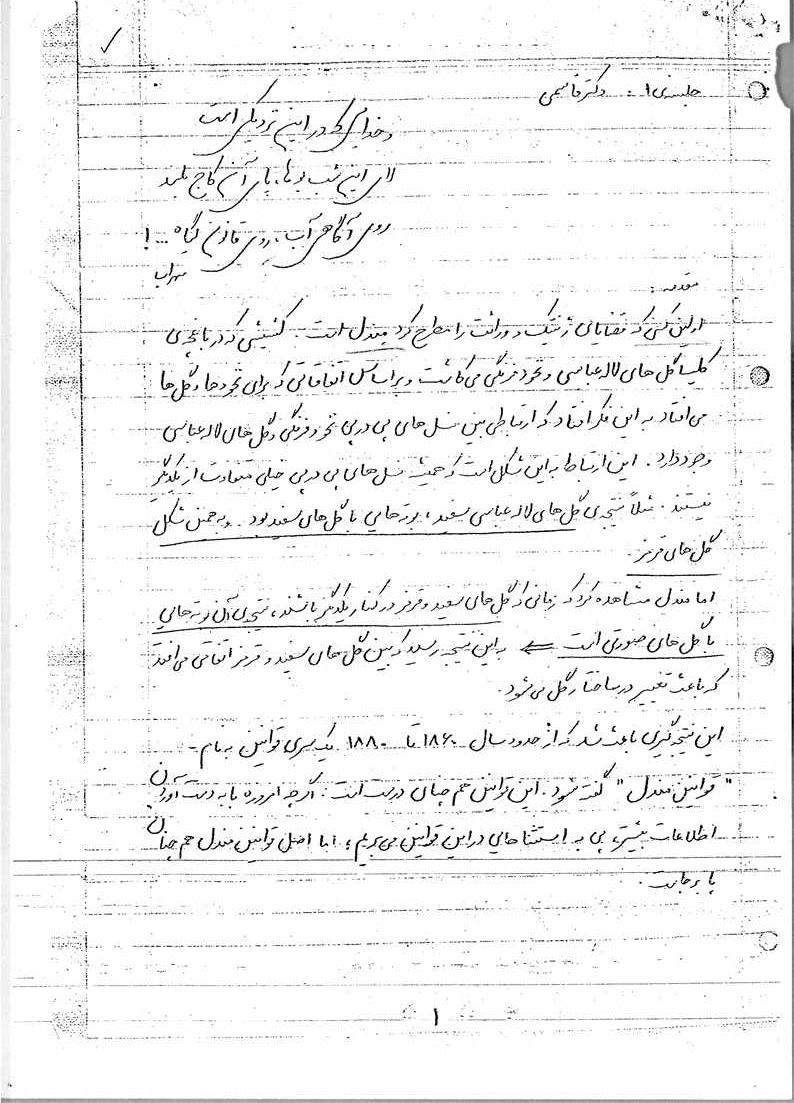 جلسه‌ی ۱ - دکتر قاسمی
و خدایی که در این نزدیکی است
لای این شب بوها، پای آن کاج بلند
روی آگاهی آب، روی قانون گیاه ...!
سهراب
مقدمه:
اولین کسی که قضایای ژنتیک و وراثت را مطرح کرد مندل است. کشیشی که در باغچه‌ی
کلیسا گل های لاله عباسی و نخود فرنگی می کاشت و بر اساس اتفاقاتی که برای نخودها و گل ها
می افتاد به این فکر افتاد که ارتباطی بین نسل های پی در پی نخود فرنگی و گل های لاله عباسی
وجود دارد. این ارتباط به این شکل است که همیشه نسل های پی در پی خیلی متفاوت از یکدیگر
نیستند. مثلاً نتیجه‌ی گل های لاله عباسی سفید، بوته هایی با گل های سفید بود. و به همین شکل
گل های قرمز.
اما مندل مشاهده کرد که زمانی که گل های سفید و قرمز در کنار یکدیگر باشند، نتیجه‌ی آن بوته هایی
با گل های صورتی است ⇐ به این نتیجه رسید که بین گل های سفید و قرمز اتفاقی می افتد
که باعث تغییر در ساختار گل می شود.
این نتیجه گیری باعث شد که از حدود سال ۱۸۶۰ تا ۱۸۸۰ یک سری قوانین به نام -
"قوانین مندل" گفته شود. این قوانین هم چنان درست است. اگر چه امروزه با به دست آوردن
اطلاعات بیشتر، پی به استثناهایی در این قوانین می بریم، اما اصل قوانین مندل هم چنان
پا برجاست.
۱